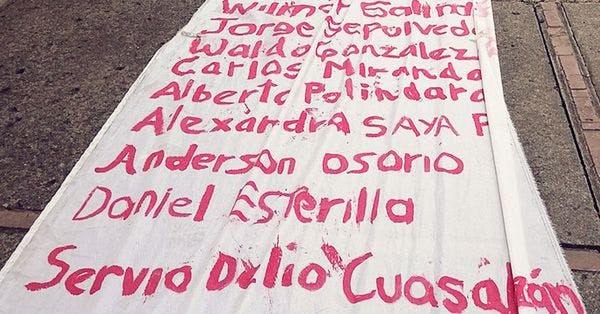 Wilmer Galind
Jorge Sepulveda
Waldo Gonzalez
Carlos Miranda
Alberto Polindara
Alexandra SAYA P
Anderson osorio
Daniel Esterilla
Servio Delio Cuasalán